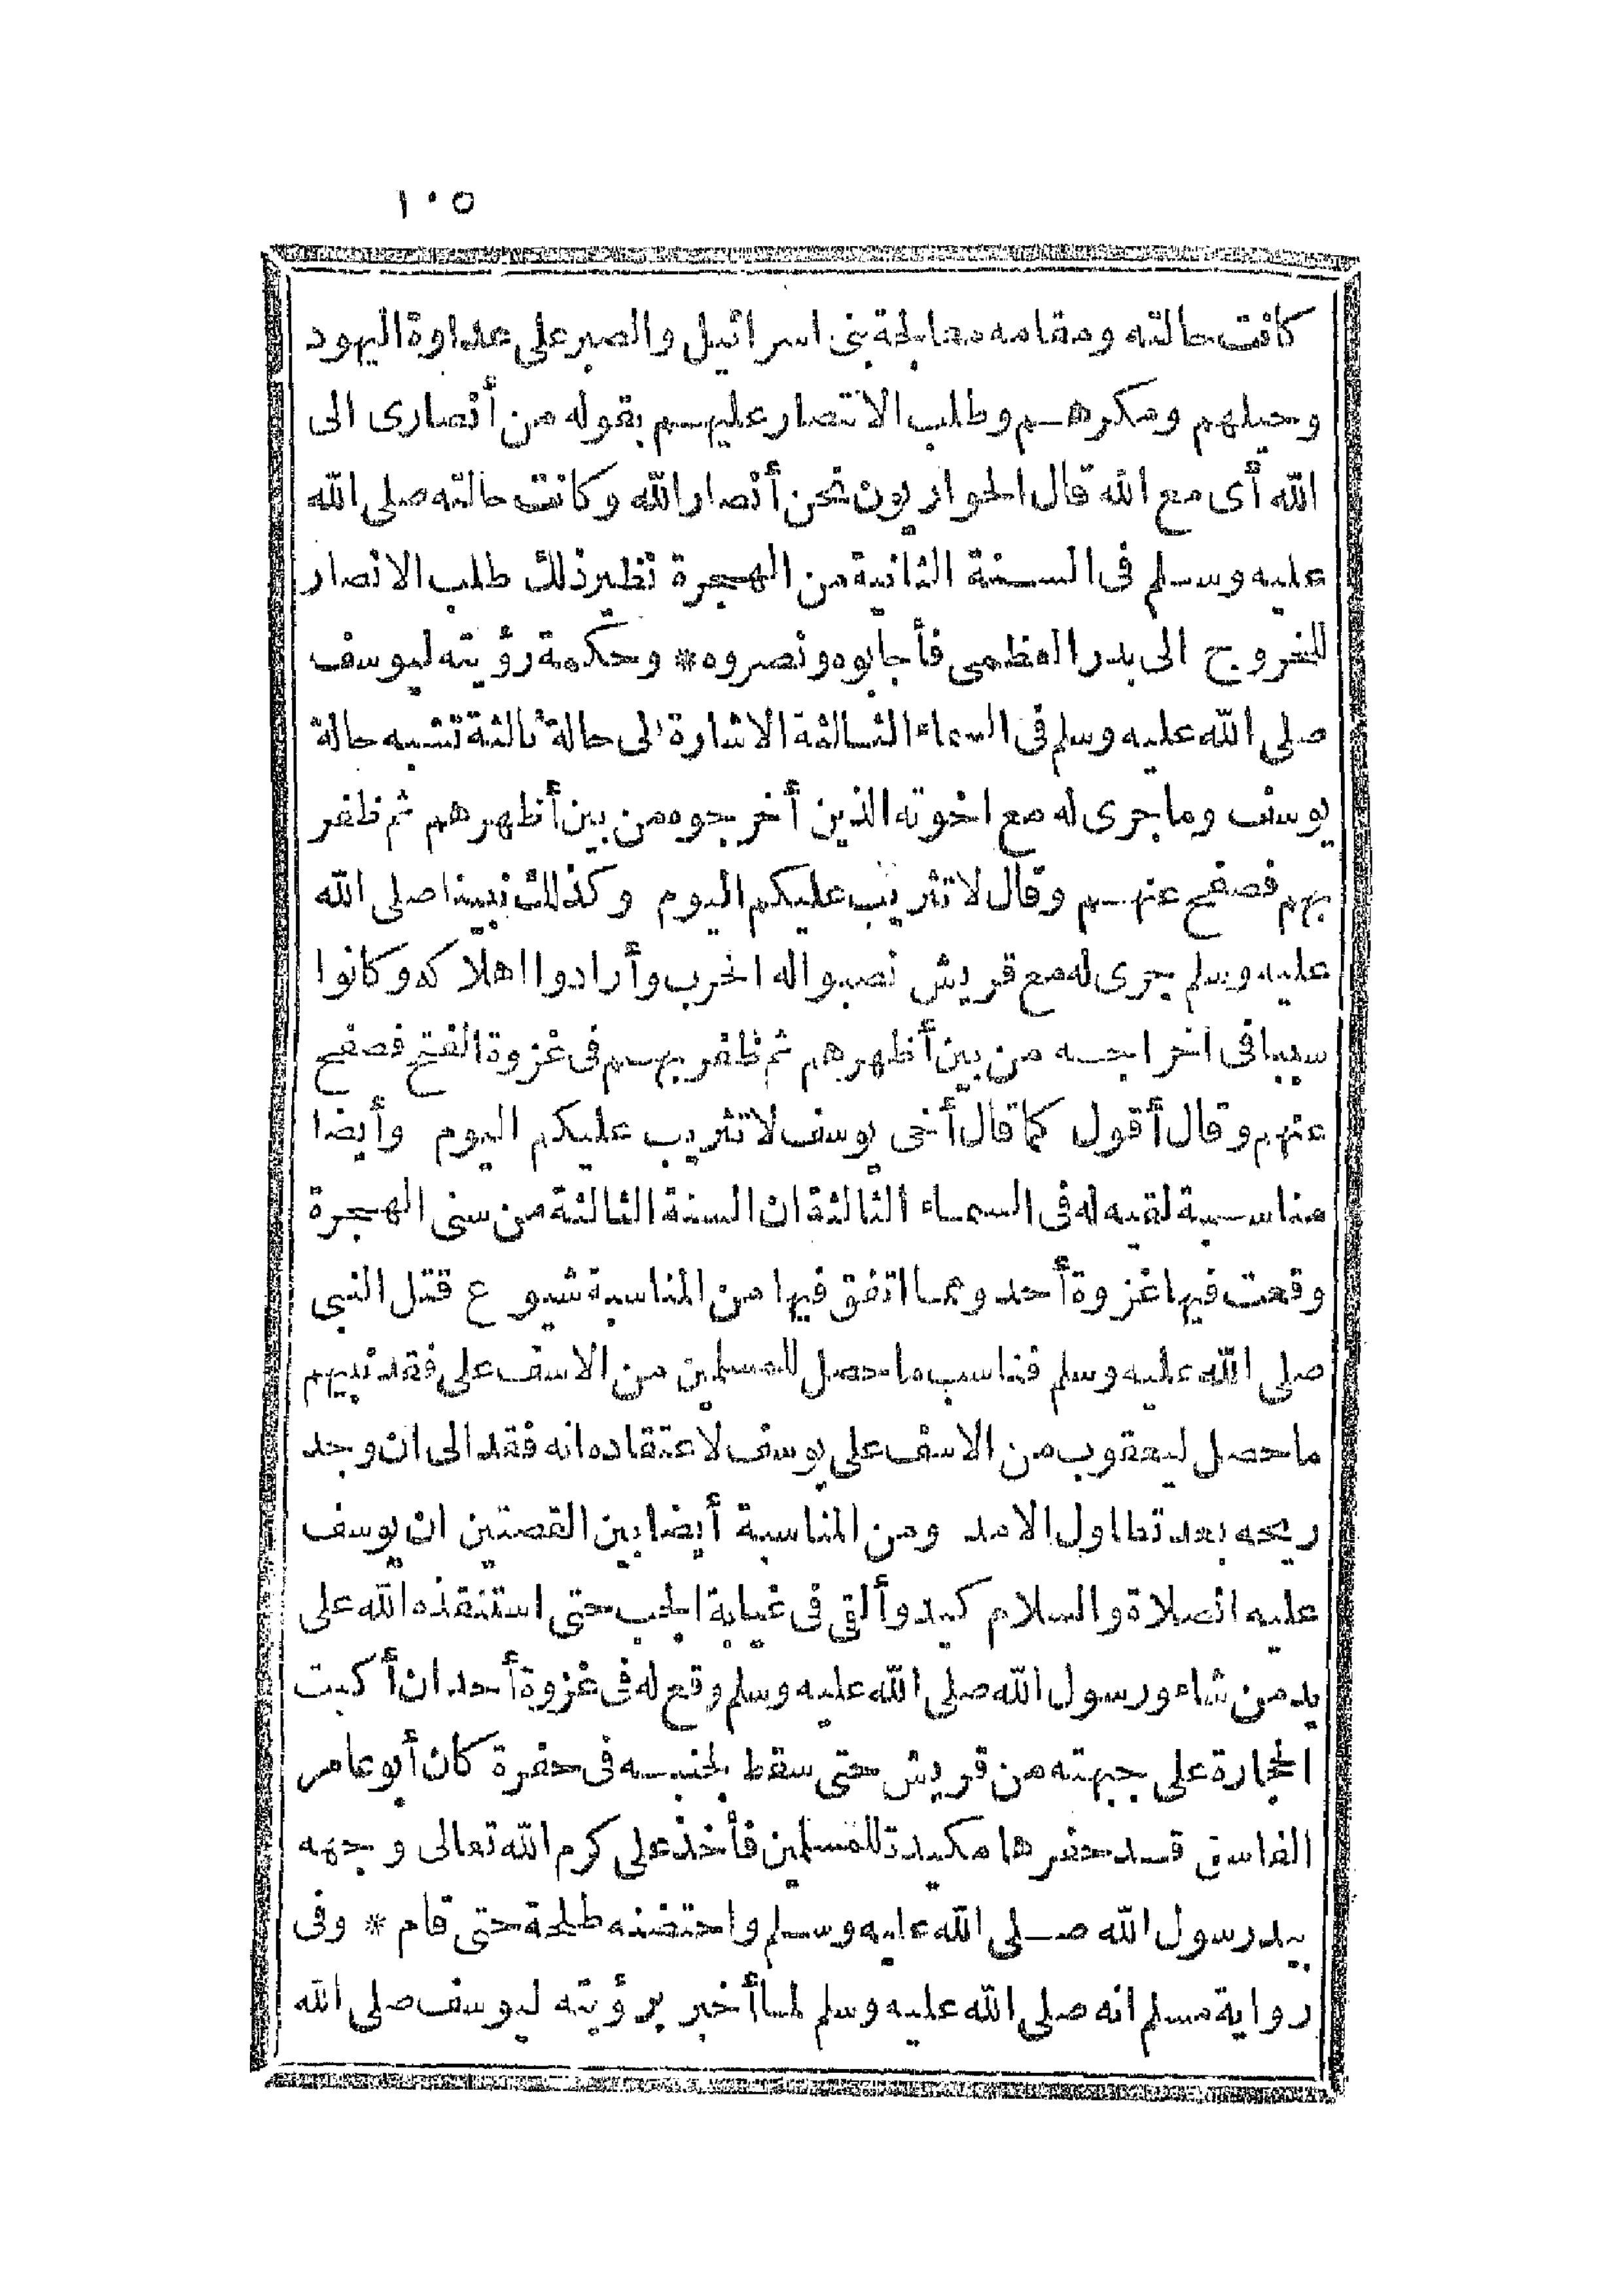 ١٠٥
كانت حالته ومقامه معالجة بنى اسرائيل والصبر على عداوة اليهود
وحيلهم ومكرهم وطلب الانتصار عليهم بقوله من أنصارى الى
الله أى مع الله قال الحواريون نحن أنصار الله وكانت حالته صلى الله
عليه وسلم فى السنة الثانية من الهجرة نظير ذلك طلب الانصار
للخروج الى بدر العظمى فأجابوه ونصروه * وحكمة رؤيته ليوسف
صلى الله عليه وسلم فى السماء الثالثة الاشارة الى حالة ثالثة تشبه حالة
يوسف وما جرى له مع اخوته الذين أخرجوه من بين أظهرهم ثم ظفر
بهم فصفح عنهم وقال لا تثريب عليكم اليوم وكذلك نبينا صلى الله
عليه وسلم جرى له مع قريش نصبوا له الحرب وأرادوا اهلاكه وكانوا
سببا فى اخراجه من بين أظهرهم ثم ظفر بهم فى غزوة الفتح فصفح
عنهم وقال أقول كما قال أخى يوسف لا تثريب عليكم اليوم وأيضا
مناسبة لقيه له فى السماء الثالثة ان السنة الثالثة من سنى الهجرة
وقعت فيها غزوة أحد ومما اتفق فيها من المناسبة شيوع قتل النبى
صلى الله عليه وسلم فناسب ما حصل للمسلمين من الاسف على فقد نبيهم
ما حصل ليعقوب من الاسف على يوسف لاعتقاده انه فقد الى ان وجد
ريحه بعد تطاول الامد ومن المناسبة أيضا بين القصتين ان يوسف
عليه الصلاة والسلام كيد وألقى فى غيابة الجب حتى استنقذه الله على
يد من شاء ورسول الله صلى الله عليه وسلم وقع له فى غزوة أحد ان أكبت
الحجارة على جبهته من قريش حتى سقط لجنبه فى حفرة كان أبو عامر
الفاسق قد حفرها مكيدة للمسلمين فأخذ على كرم الله تعالى وجهه
بيد رسول الله صلى الله عليه وسلم واحتضنه طلحة حتى قام * وفى
رواية مسلم انه صلى الله عليه وسلم لما أخبر برؤيته ليوسف صلى الله